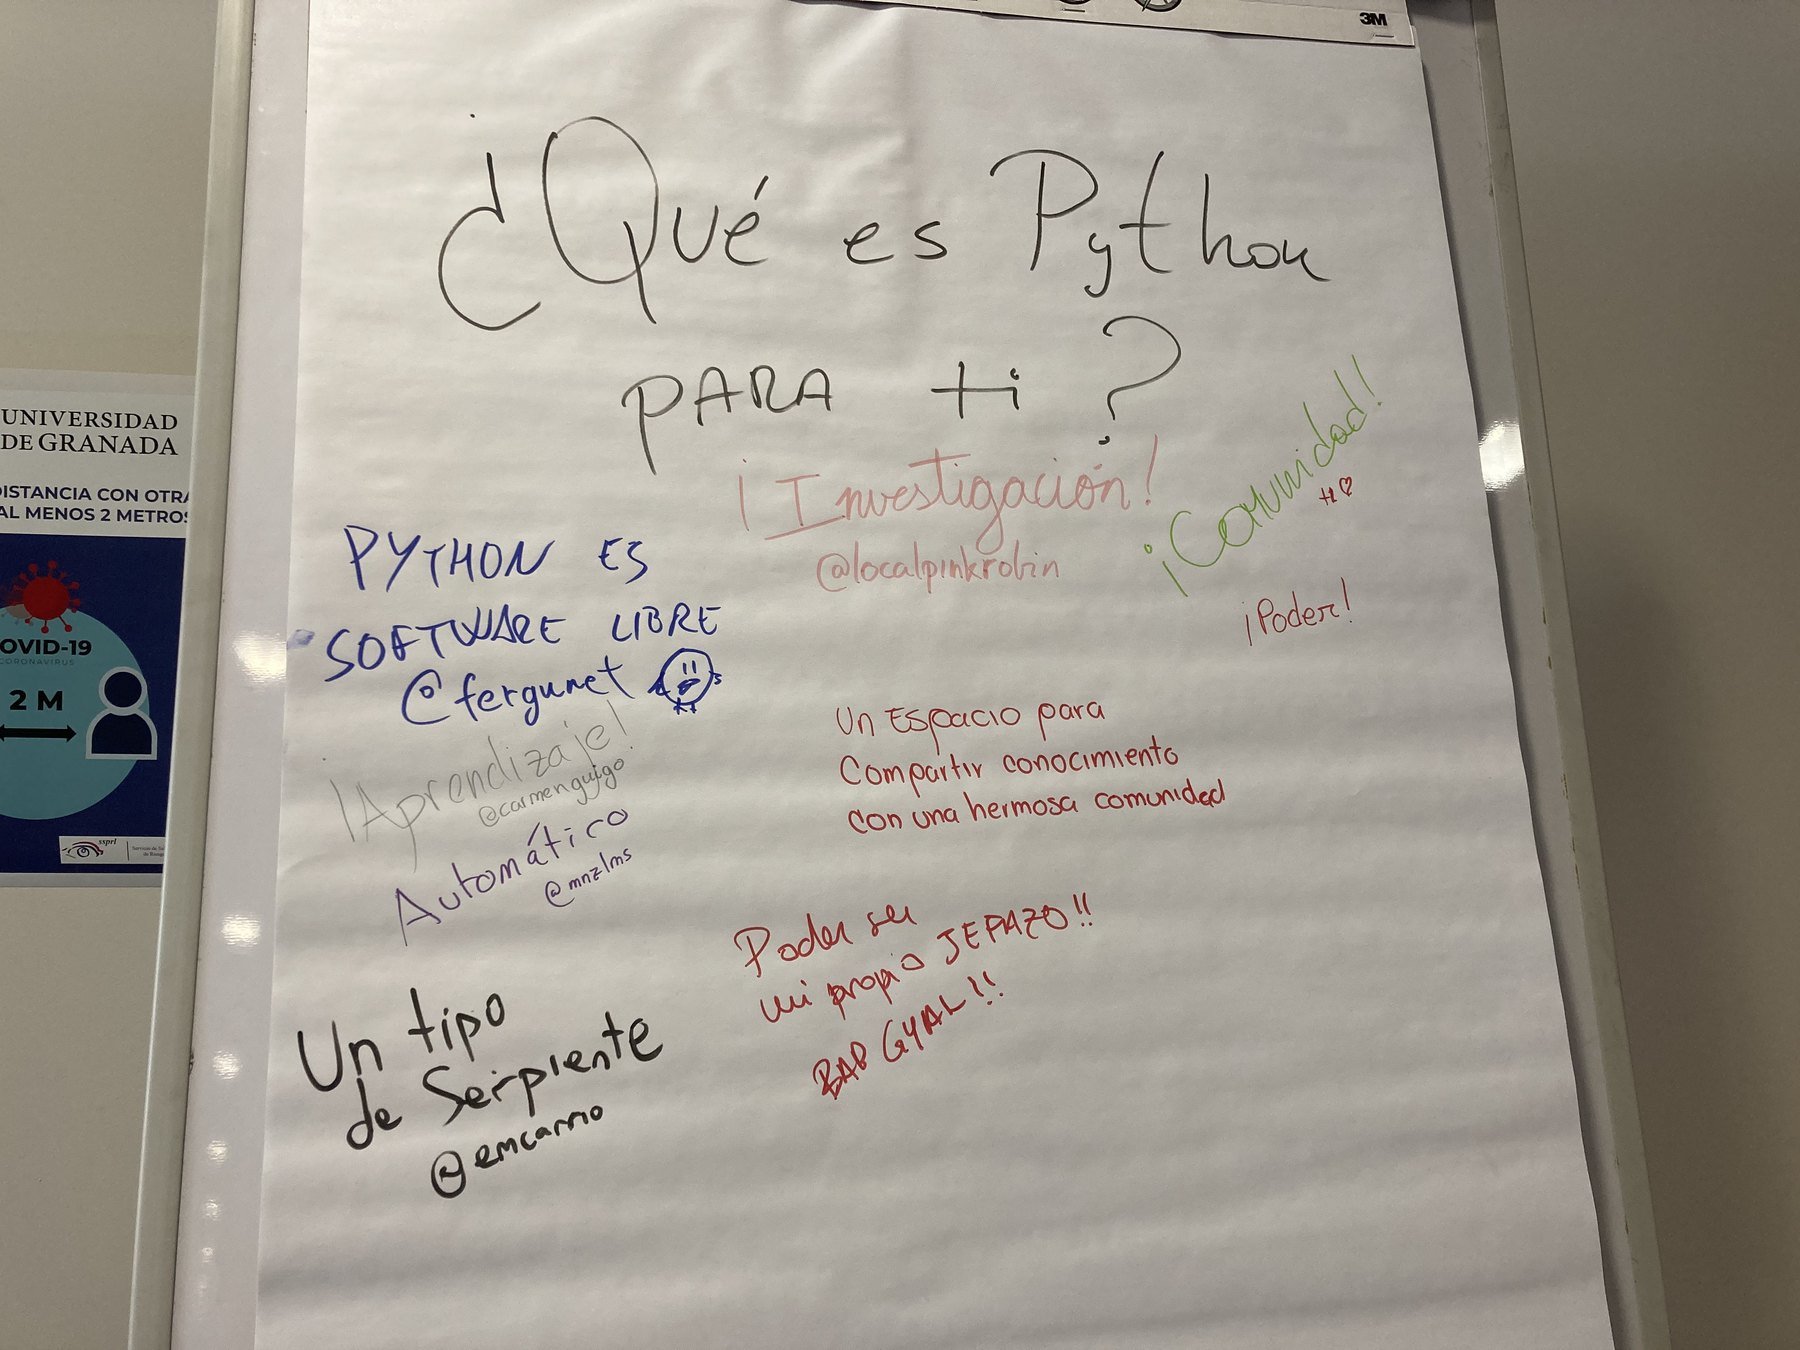 3M
¿Qué es Python
PARA ti?
¡Investigación!
@localpinkrobin
¡Comunidad!
+1
¡Poder!
PYTHON ES
SOFTWARE LIBRE
@fergunet
¡Aprendizaje!
@carmenguigo
Automático
@mnzlms
Un Espacio para
Compartir conocimiento
con una hermosa comunidad
Poder ser
mi propio JEFAZO!!
BAD GYAL!!
Un tipo
de Serpiente
@emcarrio
UNIVERSIDAD
DE GRANADA
DISTANCIA CON OTRA
AL MENOS 2 METROS
OVID-19
CORONAVIRUS
2 M
ssprl